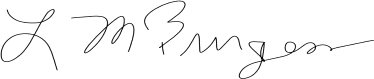 L M Burgess